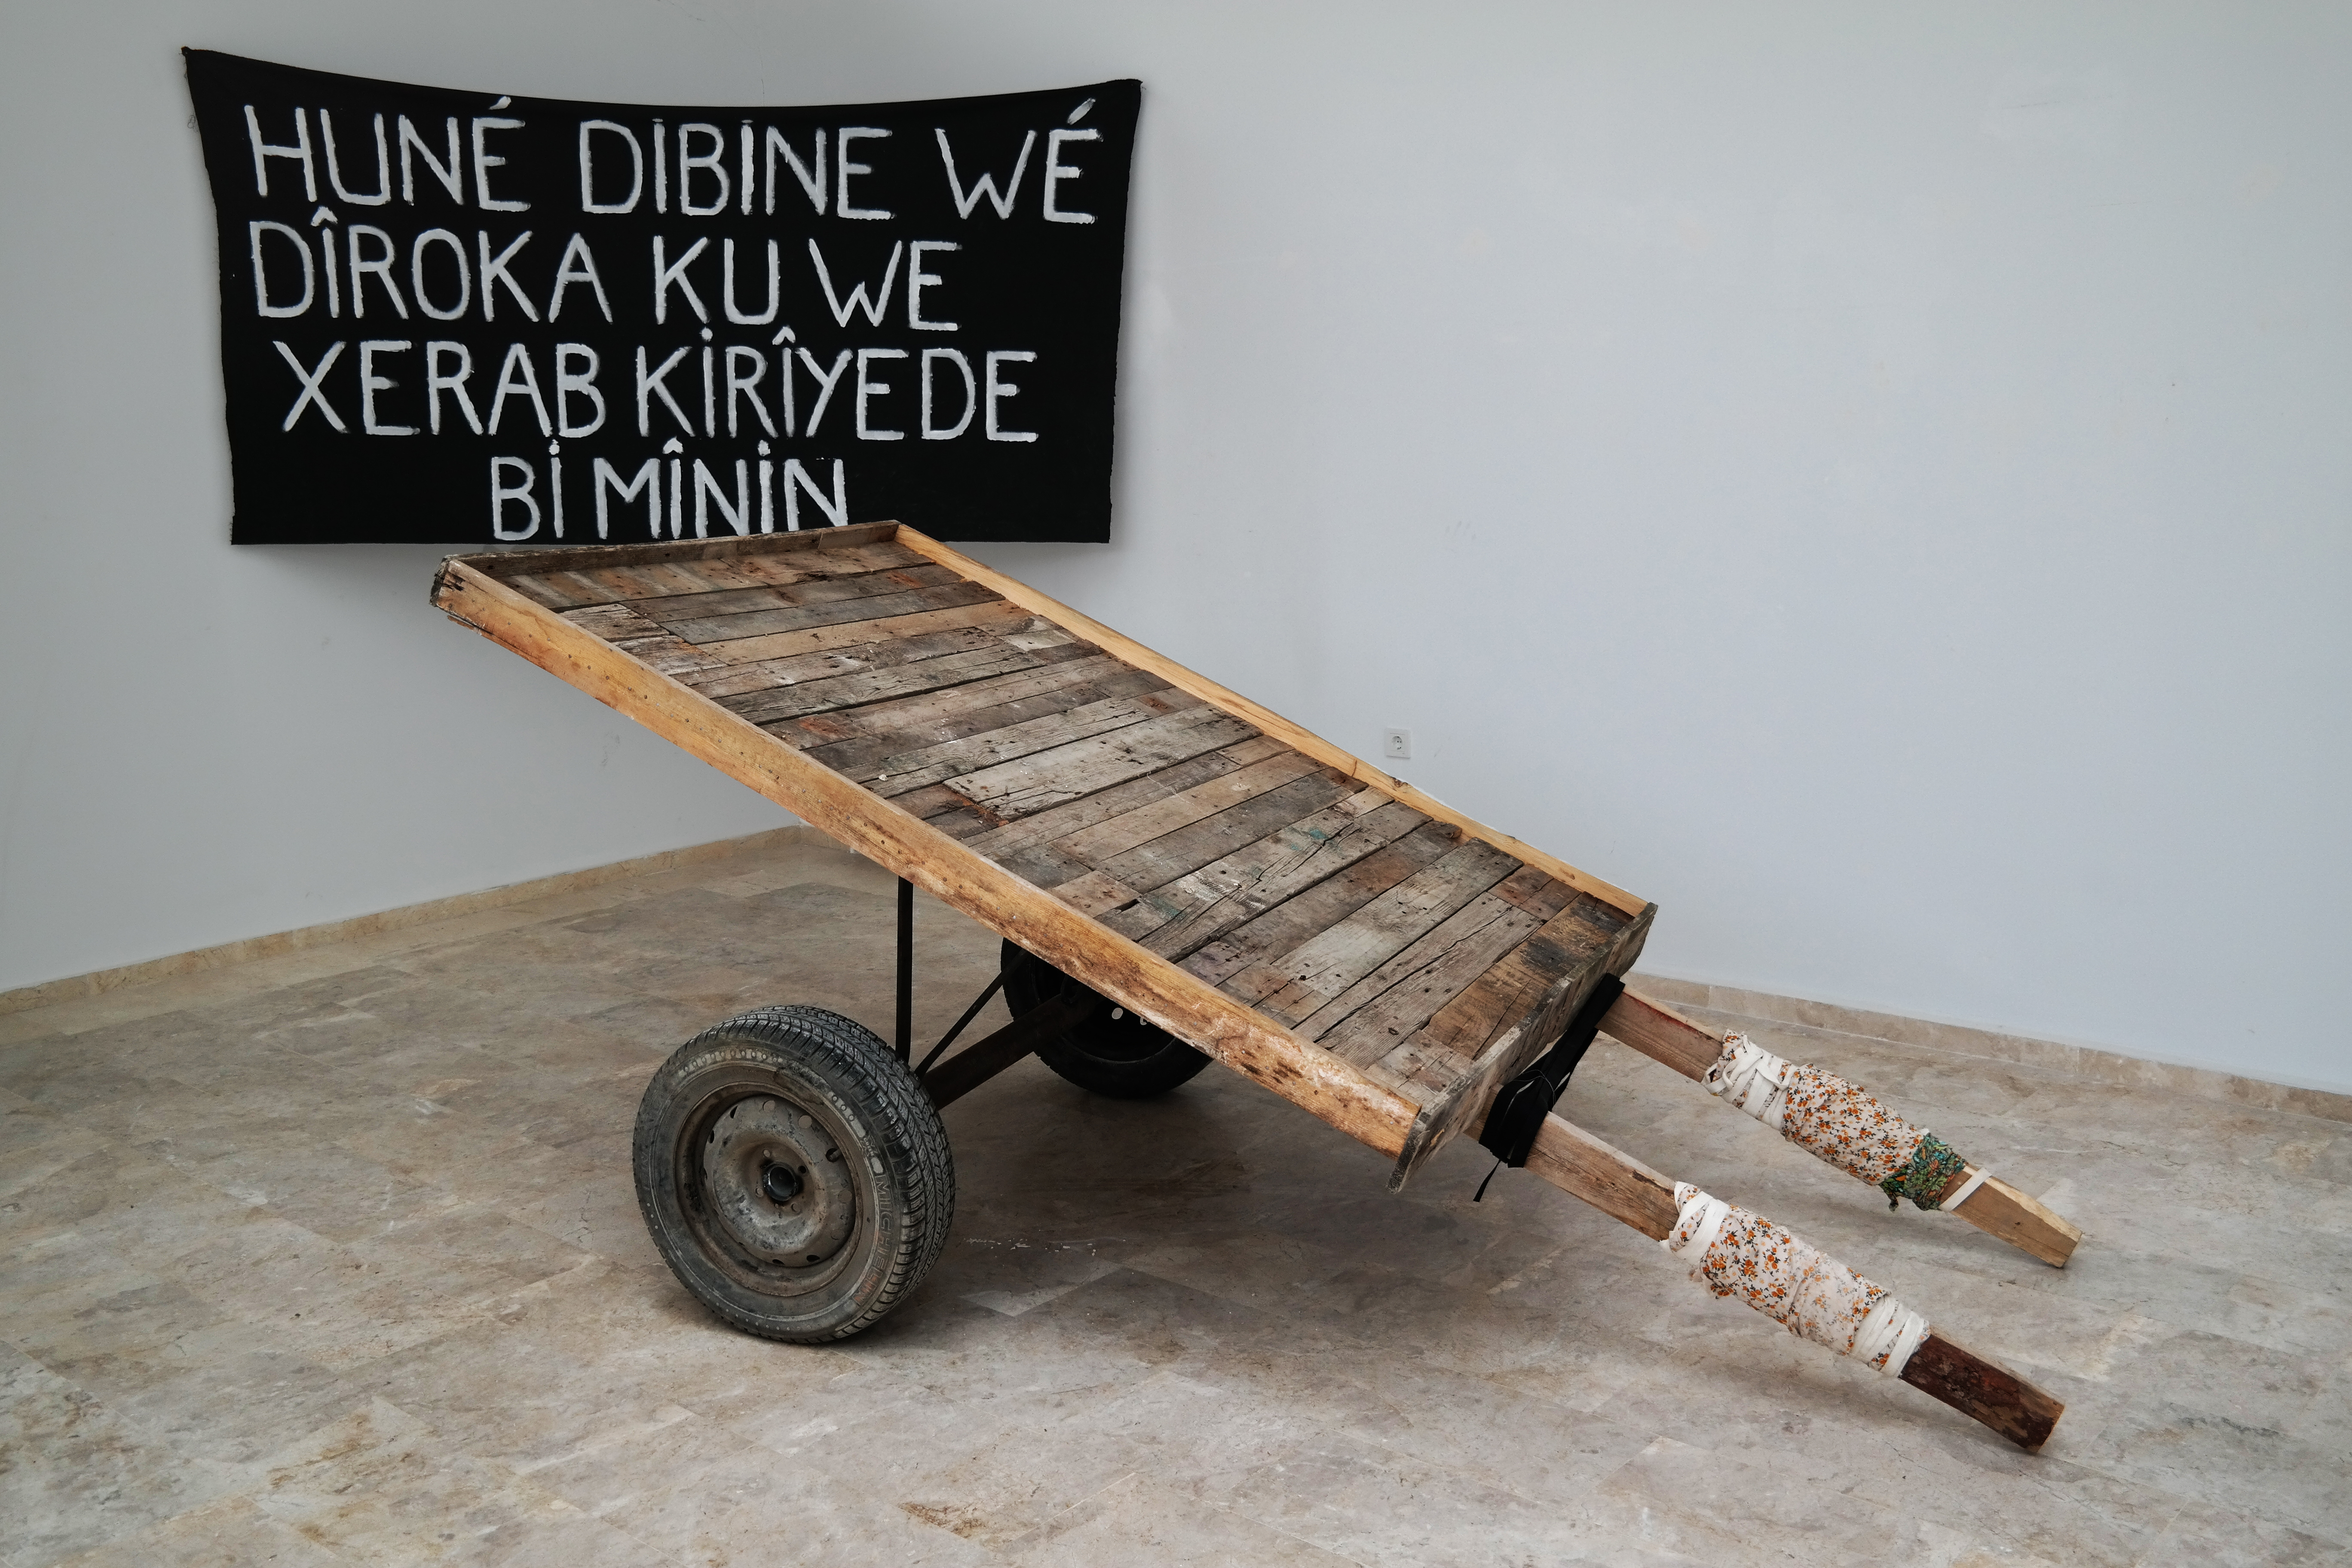 HUNÉ DİBİNE WÉ
DÎROKA KU WE
XERAB KİRÎYEDE
Bİ MÎNİN